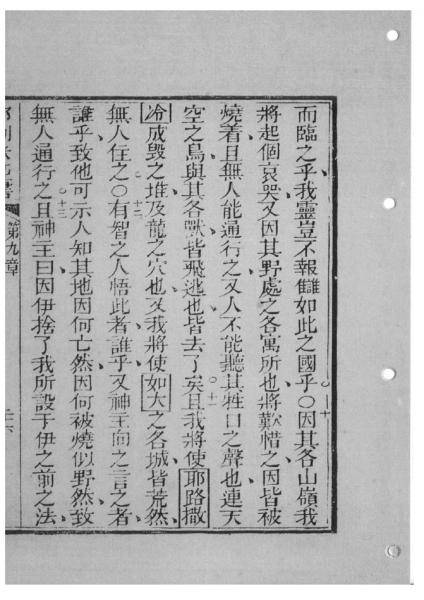 而臨之乎我靈豈不報讎如此之國乎○因其各山嶺我
十
將起個哀哭又因其野處之各寓所也將歎惜之因皆被
燒着且無人能通行之又人不能聽其牲口之聲也連天
空之鳥與其各獸皆飛逃也皆去了矣○且我將使耶路撒
十一
冷成毀之堆及龍之穴也又我將使如大之各城皆荒然
無人住之○有智之人悟此者誰乎又神主向之言之者
十二
誰乎致他可示人知其地因何亡然因何被燒似野然致
無人通行之○且神主曰因伊捨了我所設于伊之前之法
十三
第九章